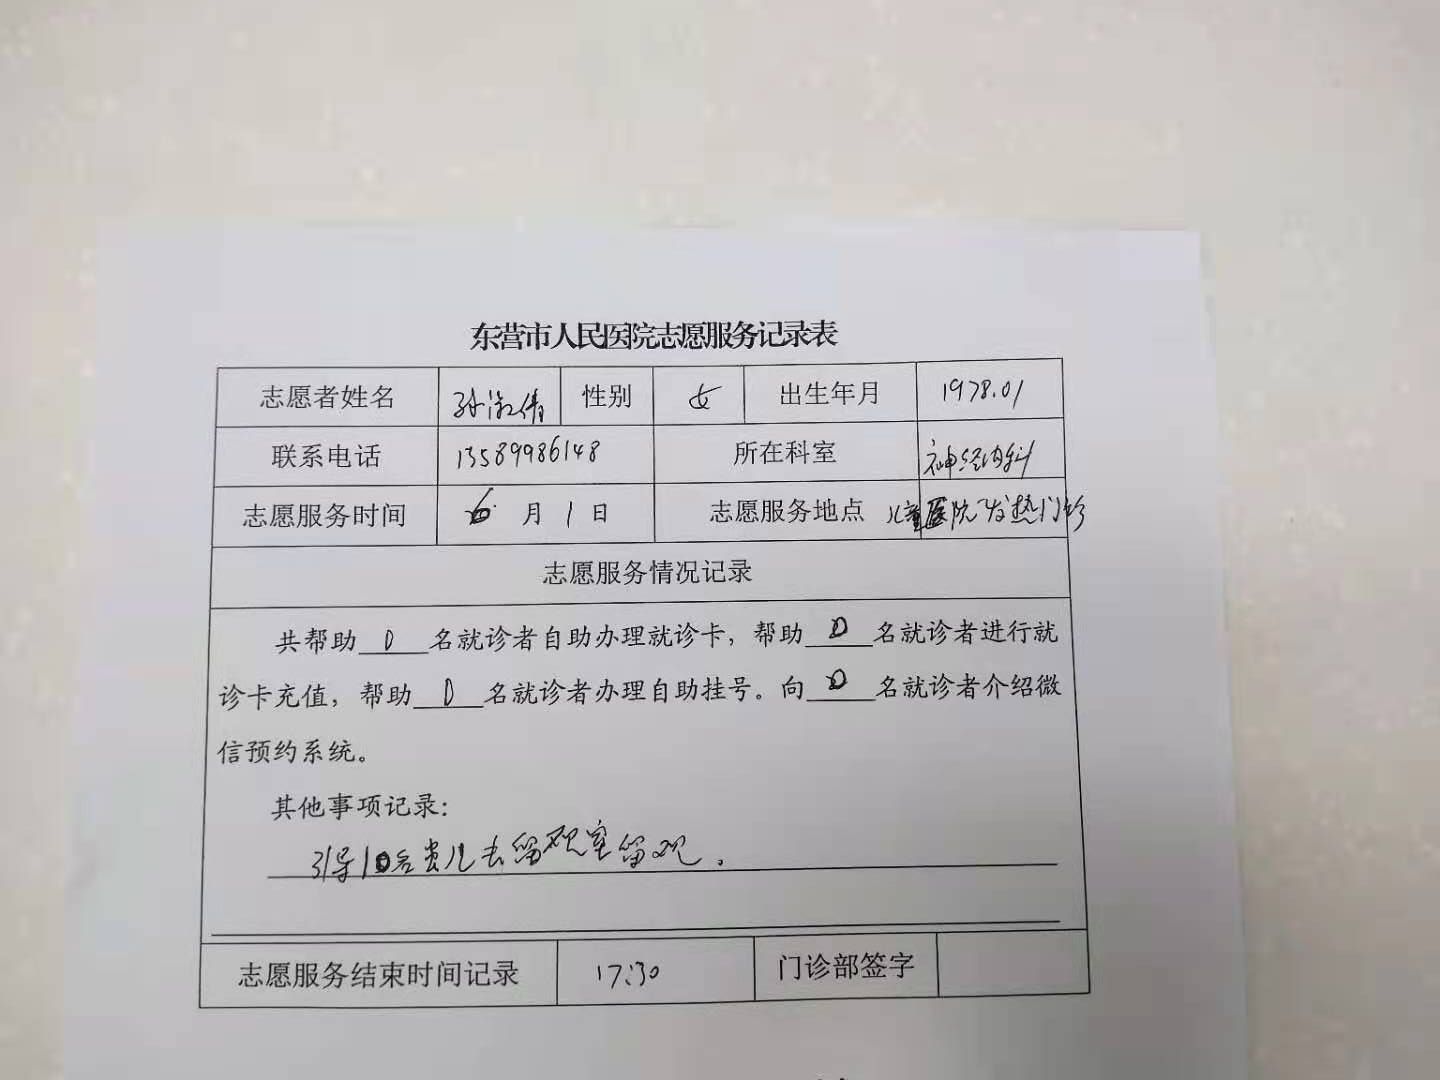 东营市人民医院志愿服务记录表
志愿者姓名 孙淑倩 性别 女 出生年月 1978.01
联系电话 13589986148 所在科室 神经内科
志愿服务时间 6月1日 志愿服务地点 儿童医院发热门诊
志愿服务情况记录
共帮助0名就诊者自助办理就诊卡，帮助0名就诊者进行就
诊卡充值，帮助0名就诊者办理自助挂号。向0名就诊者介绍微
信预约系统。
其他事项记录：
引导10名患儿去留观室留观.
志愿服务结束时间记录 17:30 门诊部签字